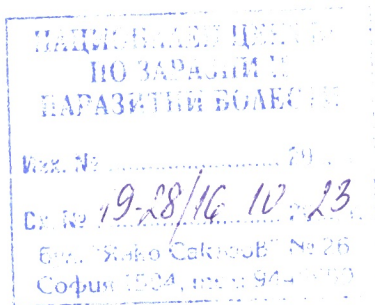 НАЦИОНАЛЕН ЦЕНТЪР
ПО ЗАРАЗНИ И
ПАРАЗИТНИ БОЛЕСТИ
Изх. №
19-28/16 10 23
бул. "Янко Сакъзов" № 26
София 1504,